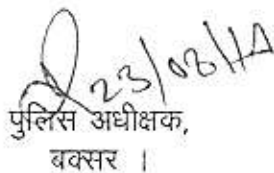 23/08/14
पुलिस अधीक्षक,
बक्सर ।